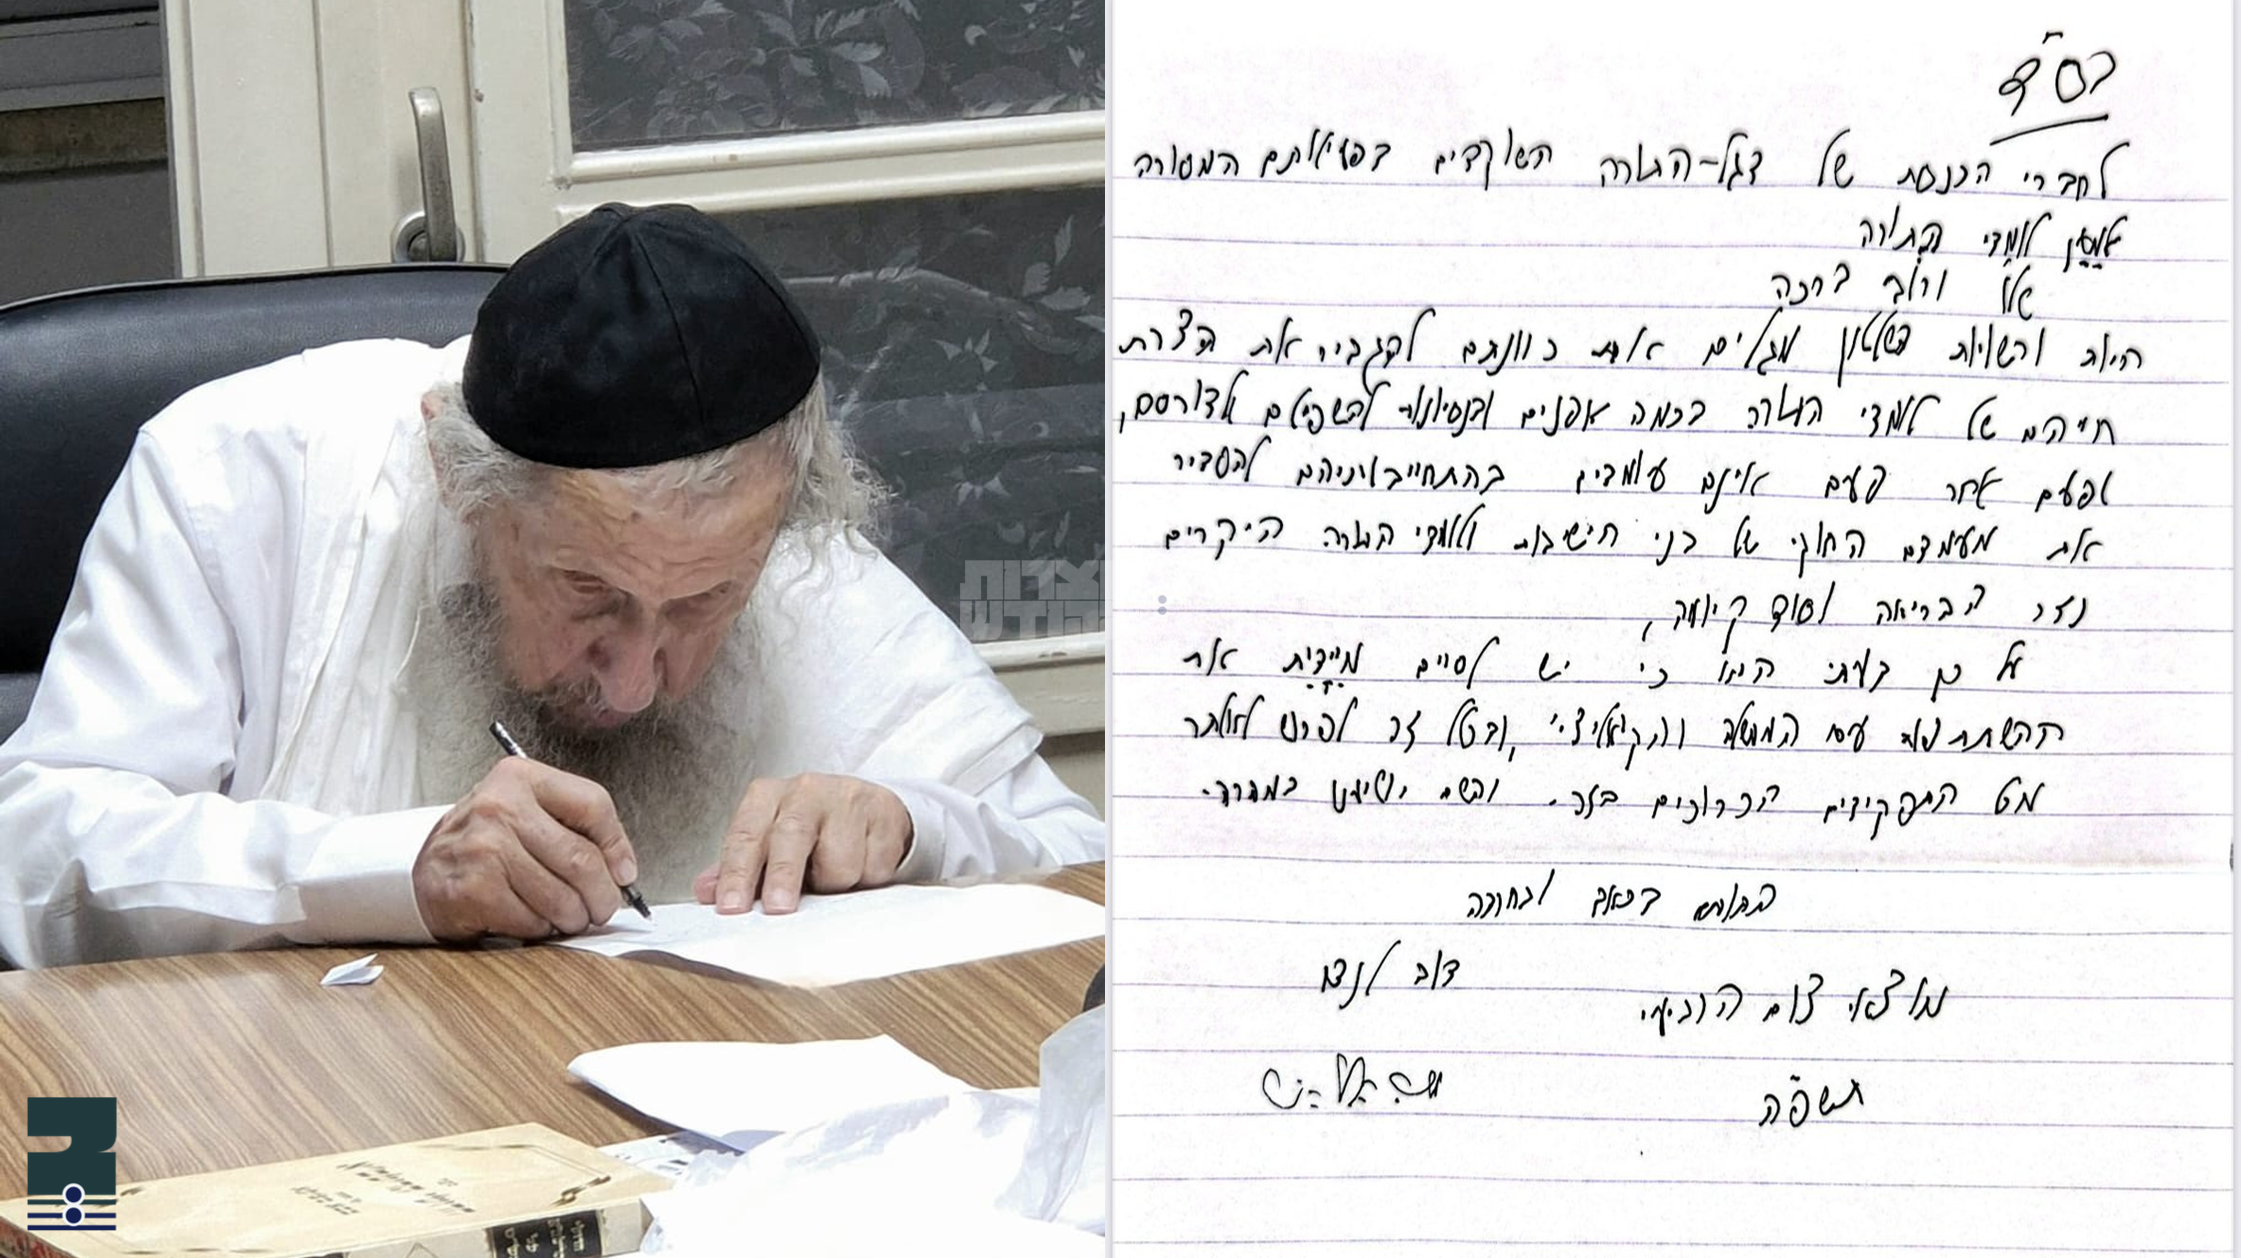 בס"ד
לחברי הכנסת של דגל-התורה השוקדים בפעולתם המסורה
למען לומדי התורה
שלו' ורוב ברכה
היות ורשויות השלטון מגלים את כוונתם להגביר את הצרת
חייהם של לומדי התורה בכמה אפנים ובנסיונות להשפילם ולדורסם,
ופעם אחר פעם אינם עומדים בהתחייבויותיהם להסדיר
את מעמדם החוקי של בני הישיבות ולומדי התורה היקרים
נזר הבריאה וסוד קיומה,
על כן דעתי היא כי יש לסיים מיידית את
ההשתתפות עם הממשלה והקואליציה, ובכלל זה לפרוש לאלתר
מכל התפקידים הכרוכים בזה. והשם יושיענו במהרה.
החותם בכאב ובחרדה
דוב לנדו
מוצאי צום הרביעי
תשפ"ה
צרות
הקודש